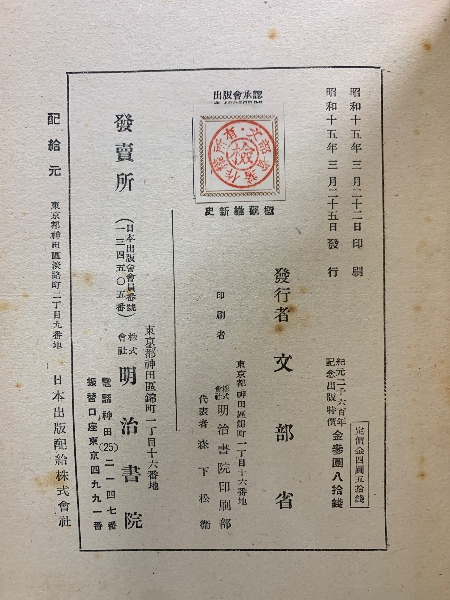 昭和十五年三月二十二日印刷
昭和十五年三月二十五日發行
定價金四圓五拾錢
紀元二千六百年
記念出版特價
金參圓八拾錢
出版會承認
文部省著作權所有
檢
概觀維新史
發行者 文部省
印刷者
東京都神田區錦町一丁目十六番地
株式會社 明治書院印刷部
代表者 森下松衞
發賣所
(日本出版會會員番號
一三四五〇五番)
東京都神田區錦町一丁目十六番地
株式會社 明治書院
電話神田(25)二一四七番
振替口座東京四九九一番
配給元
東京都神田區淡路町二丁目九番地
日本出版配給株式會社